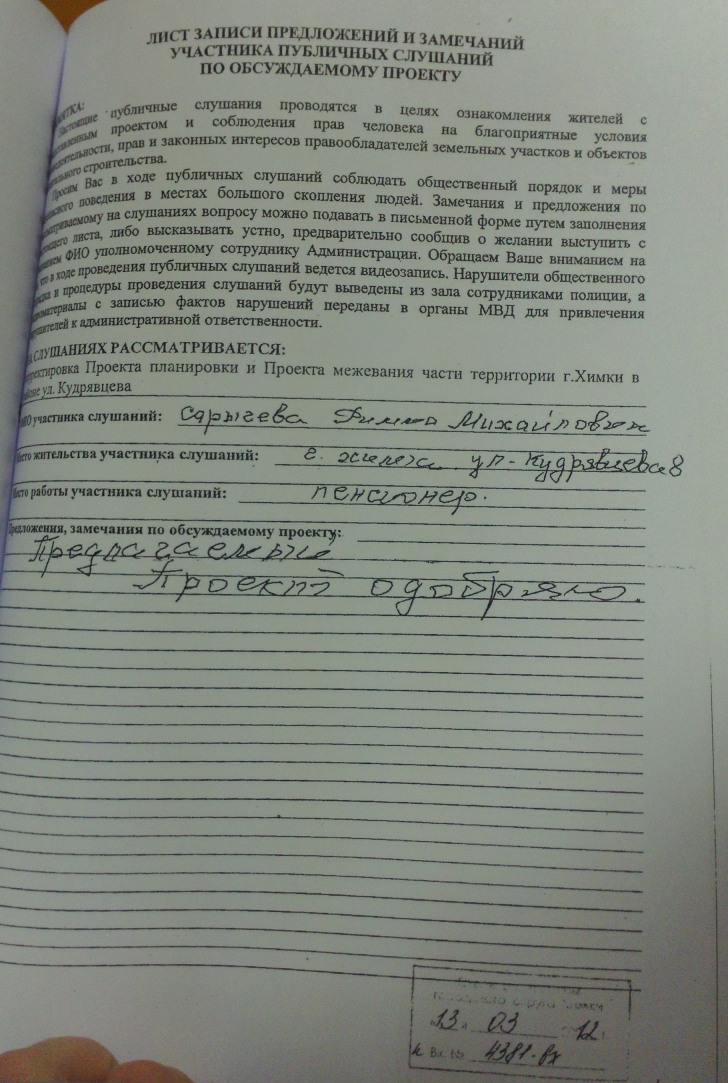 ЛИСТ ЗАПИСИ ПРЕДЛОЖЕНИЙ И ЗАМЕЧАНИЙ
УЧАСТНИКА ПУБЛИЧНЫХ СЛУШАНИЙ
ПО ОБСУЖДАЕМОМУ ПРОЕКТУ
публичные слушания проводятся в целях ознакомления жителей с
проектом и соблюдения прав человека на благоприятные условия
прав и законных интересов правообладателей земельных участков и объектов
строительства.
Просим Вас в ходе публичных слушаний соблюдать общественный порядок и меры
поведения в местах большого скопления людей. Замечания и предложения по
на слушаниях вопросу можно подавать в письменной форме путем заполнения
листа, либо высказывать устно, предварительно сообщив о желании выступить с
ФИО уполномоченному сотруднику Администрации. Обращаем Ваше вниманием на
что в ходе проведения публичных слушаний ведется видеозапись. Нарушители общественного
и процедуры проведения слушаний будут выведены из зала сотрудниками полиции, а
с записью фактов нарушений переданы в органы МВД для привлечения
к административной ответственности.
СЛУШАНИЯХ РАССМАТРИВАЕТСЯ:
Проекта планировки и Проекта межевания части территории г.Химки в
ул. Кудрявцева
участника слушаний: Сарычева Римма Михайловн
жительства участника слушаний: г. Химки ул-Кудрявцева 8
работы участника слушаний: пенсионер.
Предложения, замечания по обсуждаемому проекту:
Предлагаемый
Проект одобряю.
13 03 12
Вх. № 4381-вх